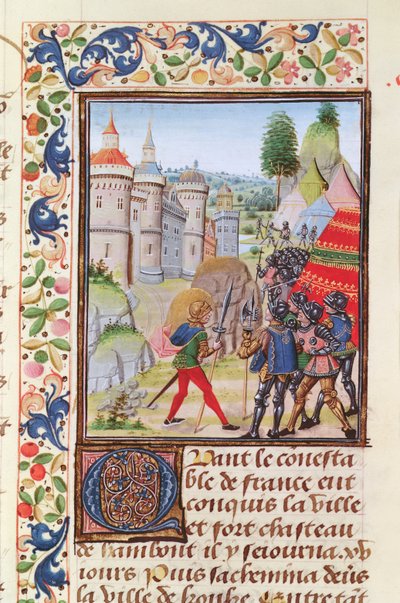 Quant le conesta
ble de france eut
conquis la ville
et fort chasteau
de hambont il y seiourna .xv
iours Puis sachemina deũs
la ville de